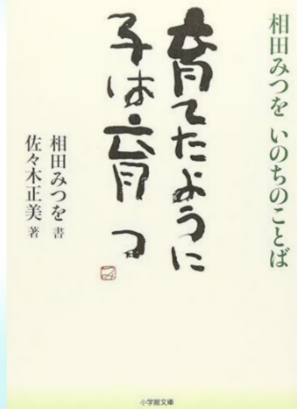 相田みつを いのちのことば
育てたように
子は育つ
相田みつを 書
佐々木正美 著
小学館文庫